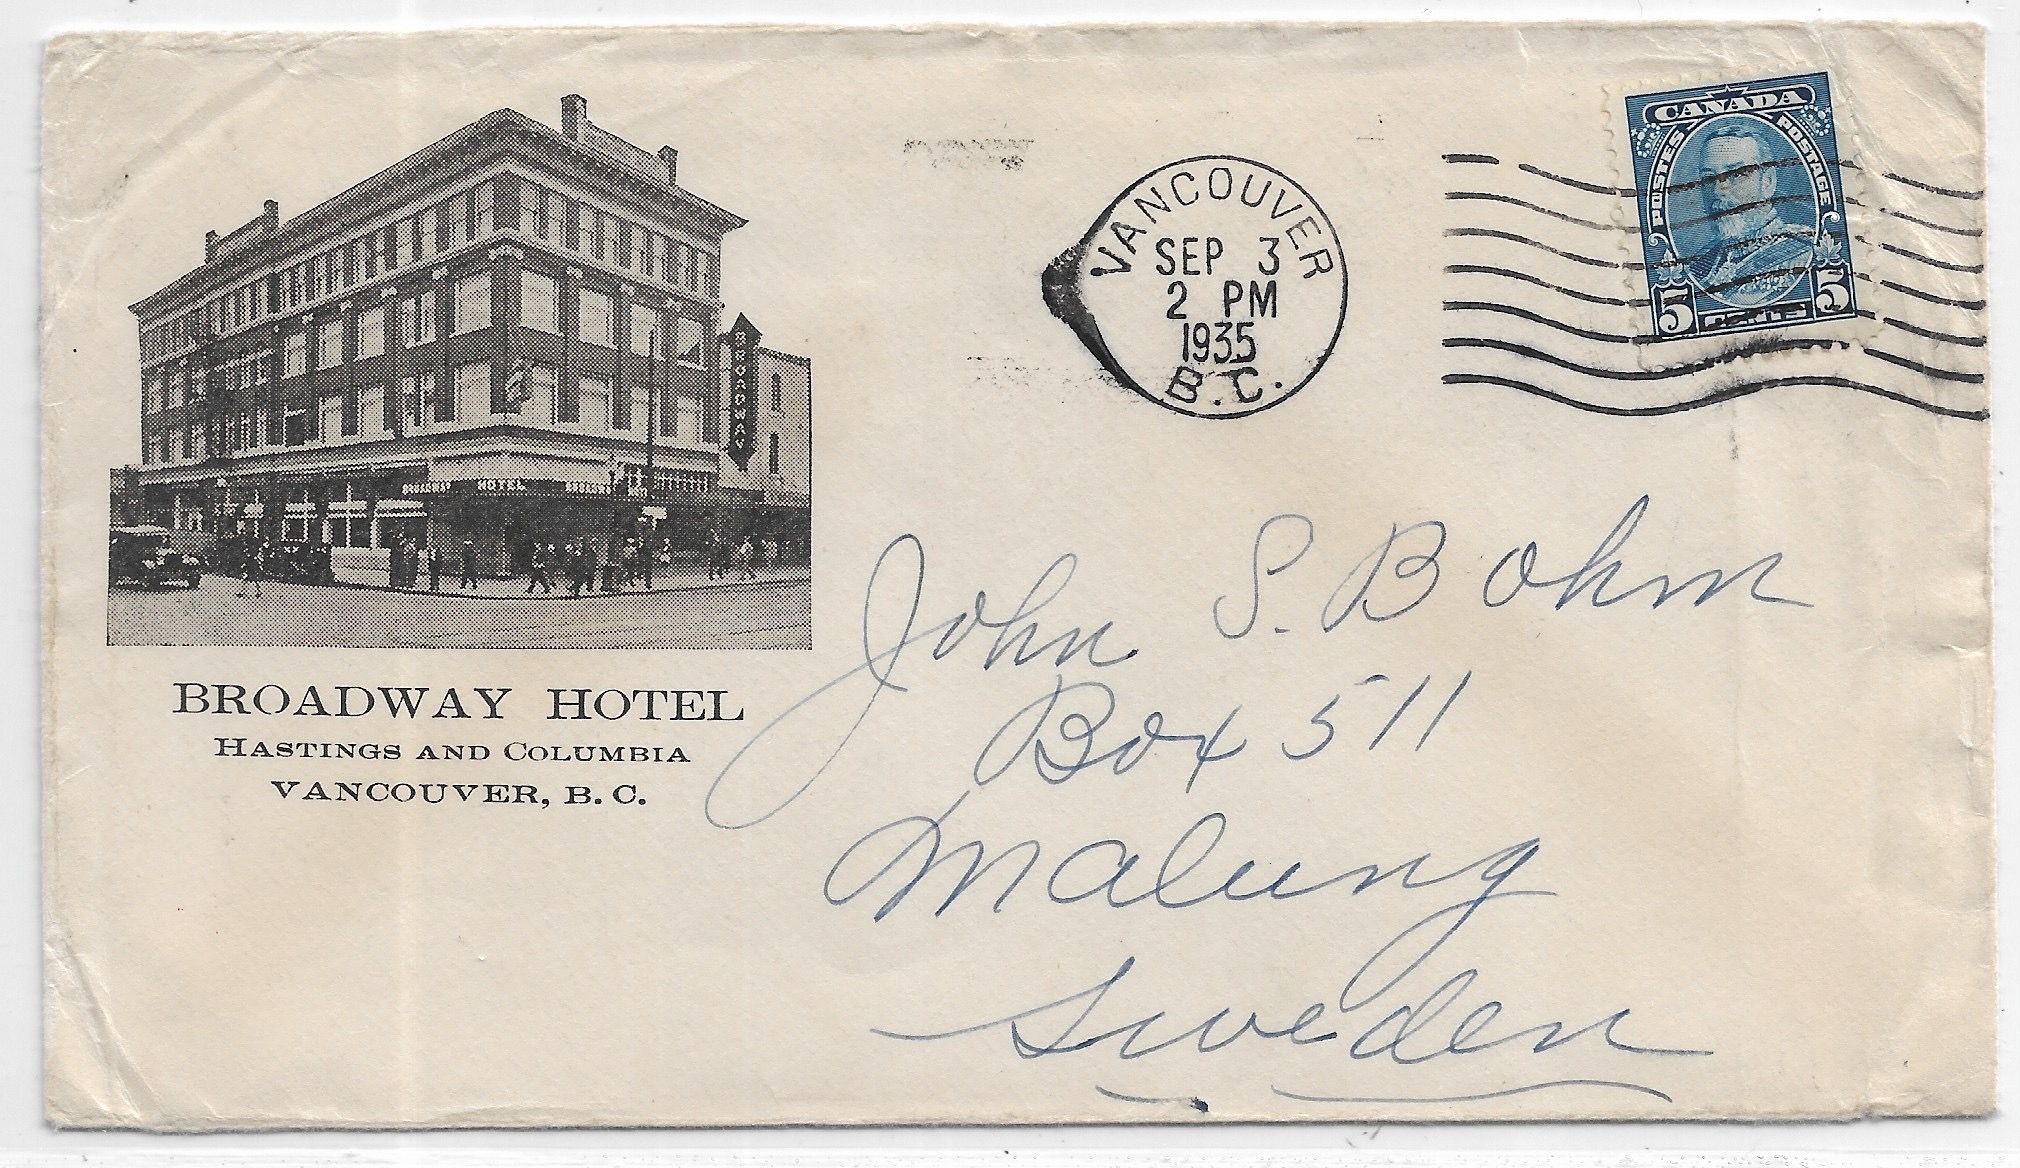 BROADWAY
BROADWAY HOTEL
BROADWAY HOTEL
HASTINGS AND COLUMBIA
VANCOUVER, B. C.
VANCOUVER
SEP 3
2 PM
1935
B. C.
CANADA
POSTES POSTAGE
5 CENTS 5
John S. Bohm
Box 511
Malung
Sweden